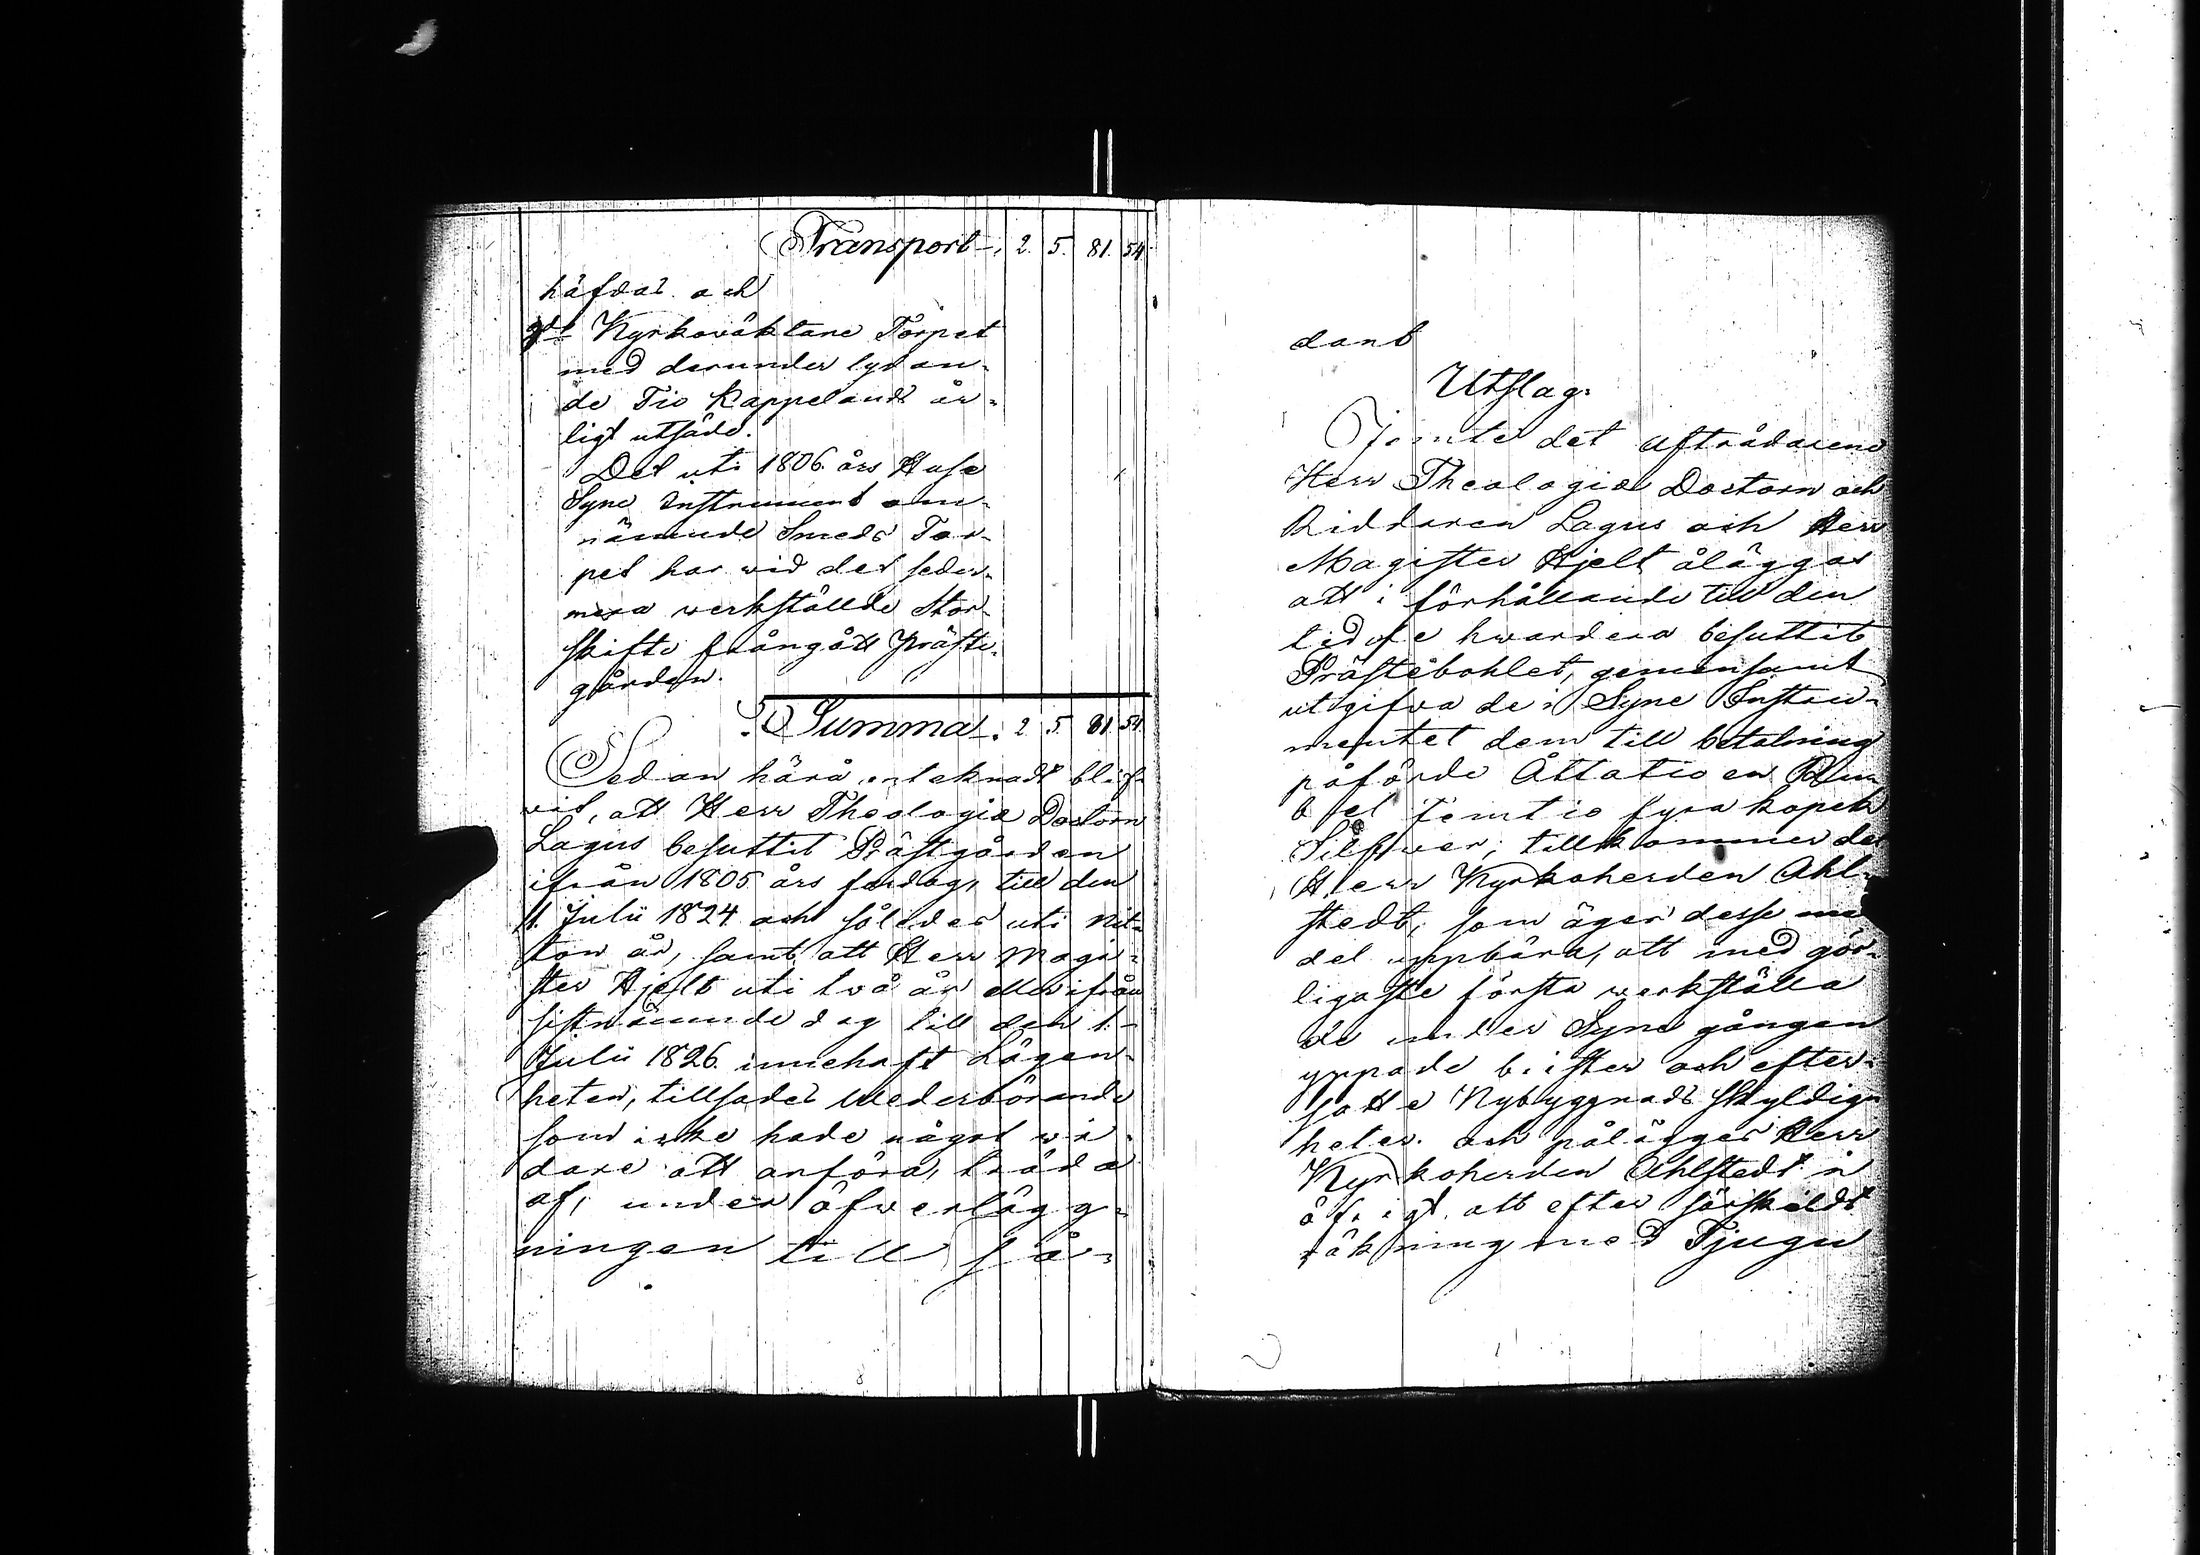 Transport. 2. 5. 81. 54.
häfdas och
9de Kyrkowäktare Torpet
med derunder lydan-
de Tio Kappelands år-
ligt utsäde.
Det uti 1806. års Huse
Syne Instrument om-
nämnde Smeds Tor-
pet har wid det seder-
mera werkställde Stor
skifte frångått Präste-
gården.
Summa. 2. 5. 81. 54.
Sedan härå anteknadt blif-
vit, att Herr Theologiæ Doctorn
Lagus besuttit Prästgården
ifrån 1805 års fardag, till den
1. Julii 1824 och således uti Nit-
ton år, samt att Herr Magi-
ster Hjelt uti två år eller ifrån
sistnämnde dag till den 1.
Julii 1826. innehaft Lägen-
heten, tillsades Wederbörande
som icke hade något vi-
dare att anföra, träda
af, under öfverlägg-
ningen till så-
dant
Utslag.
Jemte det afträdarene
Herr Theologiæ Doctorn och
Riddaren Lagus och Herr
Magister Hjelt åläggas
att i förhållande till den
tid de hwardera besuttit
Prästebohlet, gemensamt
utgifva de i Syne Instru-
mentet dem till betalning
påförde Åttatio en Ru-
bel femtio fyra kopek
Silfwer; tillkommer det
Herr Kyrkoherden Ahl-
stedt, som äger desse me
del uppbära, att med gör-
ligaste första werkställa
de under Syne gången
yppade brister och efter-
satte Nybyggnads skyldig-
heter. och pålägges Herr
Kyrkoherden Ahlstedt i
öfrigt att efter särskildt
räkning med Tjugu